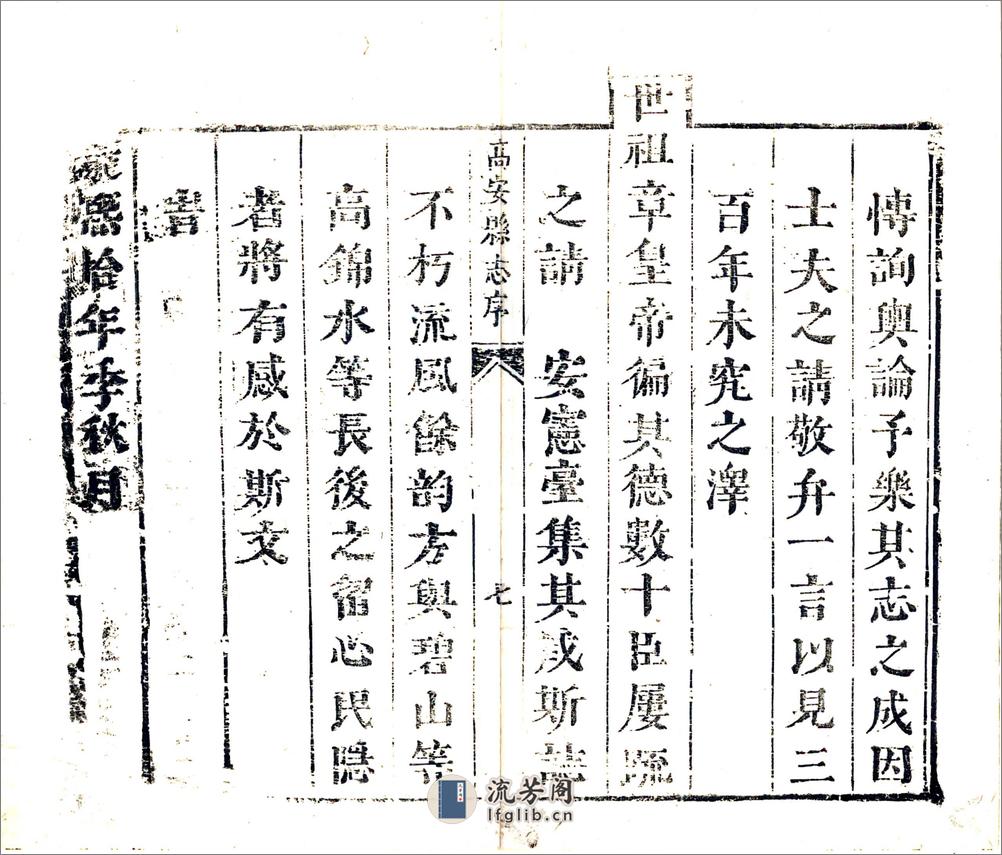 博詢輿論予樂其志之成因
士大夫之請敬弁一言以見三
百年未究之澤
世祖章皇帝徧其德數十臣屢疏
之請　安憲臺集其成斯誌
高安縣志序
七
不朽流風餘韵方與碧山等
高錦水等長後之留心民隱
者將有感於斯文
旹
康熙拾年季秋月
流芳阁
lfglib.cn